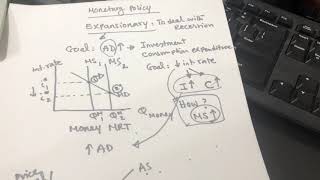 Monetary Policy
Expansionary : To deal with
Recession
Goal: AD↑ → Investment
Consumption expenditure
Goal: ↓ int rate
I↑ C↑
How?
MS↑
int. rate MS₁ MS₂
MD
Q Money
Money MRT
↑ AD
Price
AS